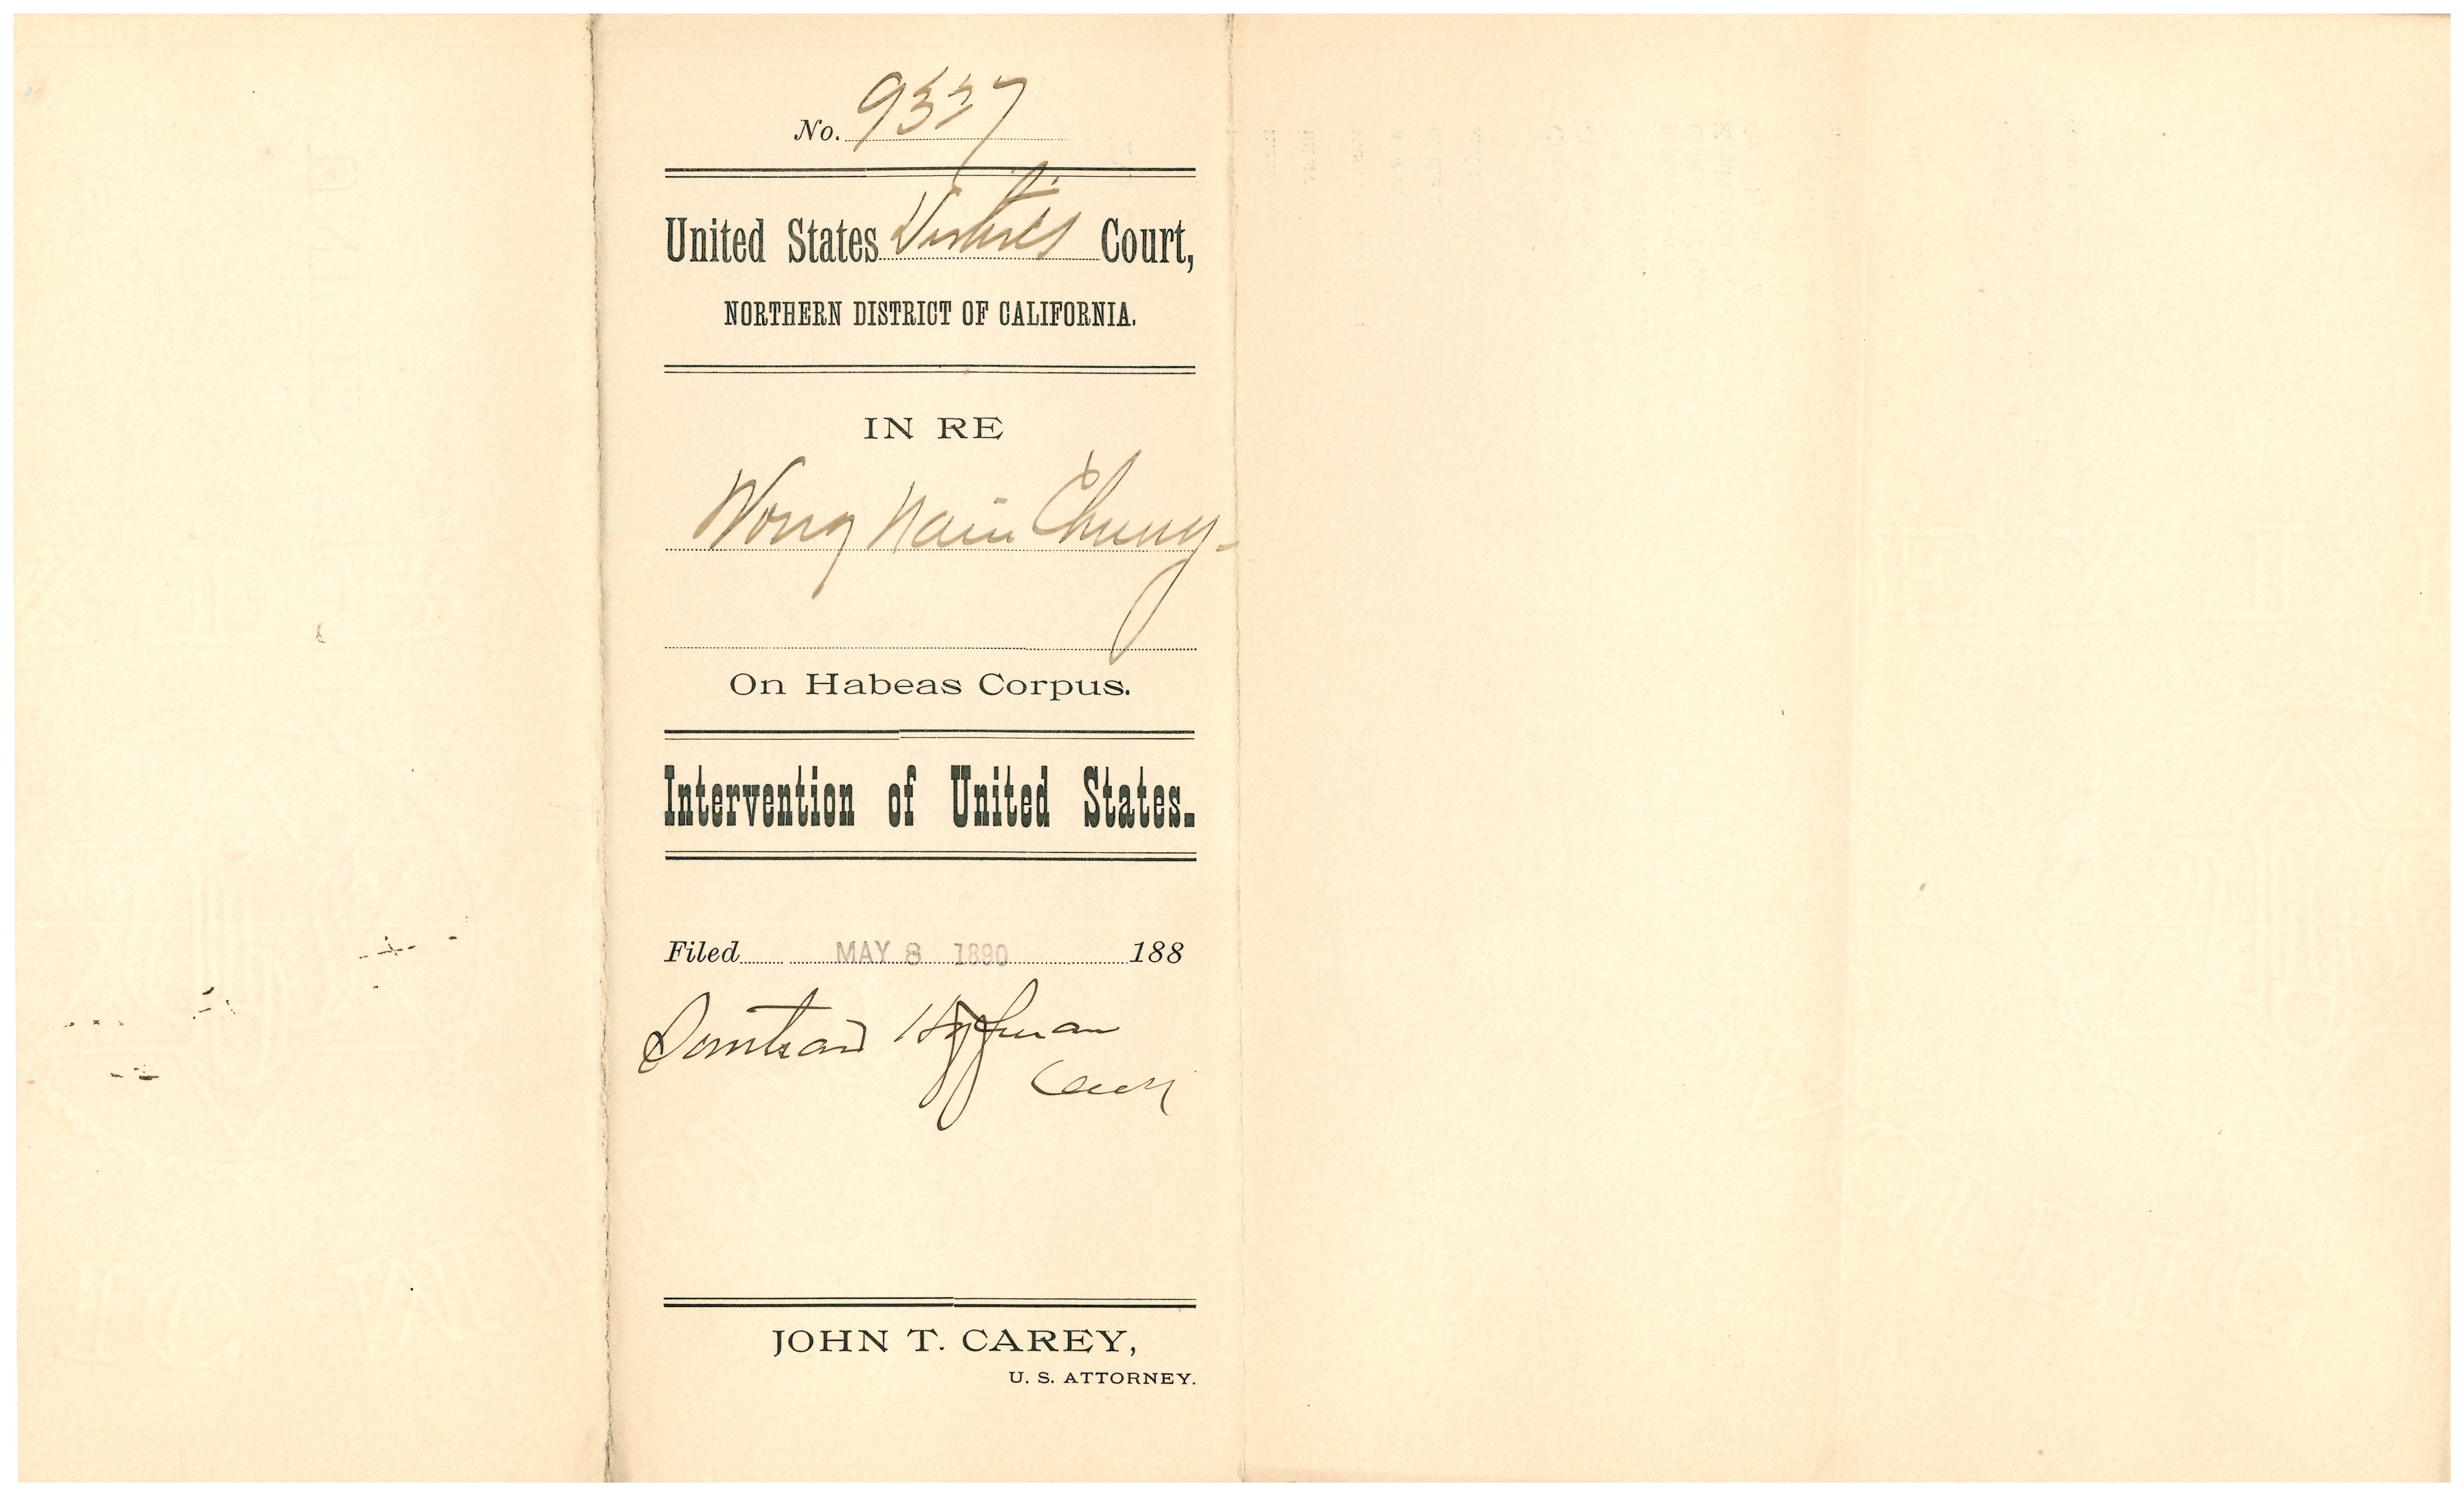 No. 9537
United States District Court,
NORTHERN DISTRICT OF CALIFORNIA.
IN RE
Wong Nain Chung
On Habeas Corpus.
Intervention of United States.
Filed MAY 8 1890 188
Southard Hoffman
Clerk
JOHN T. CAREY,
U. S. ATTORNEY.